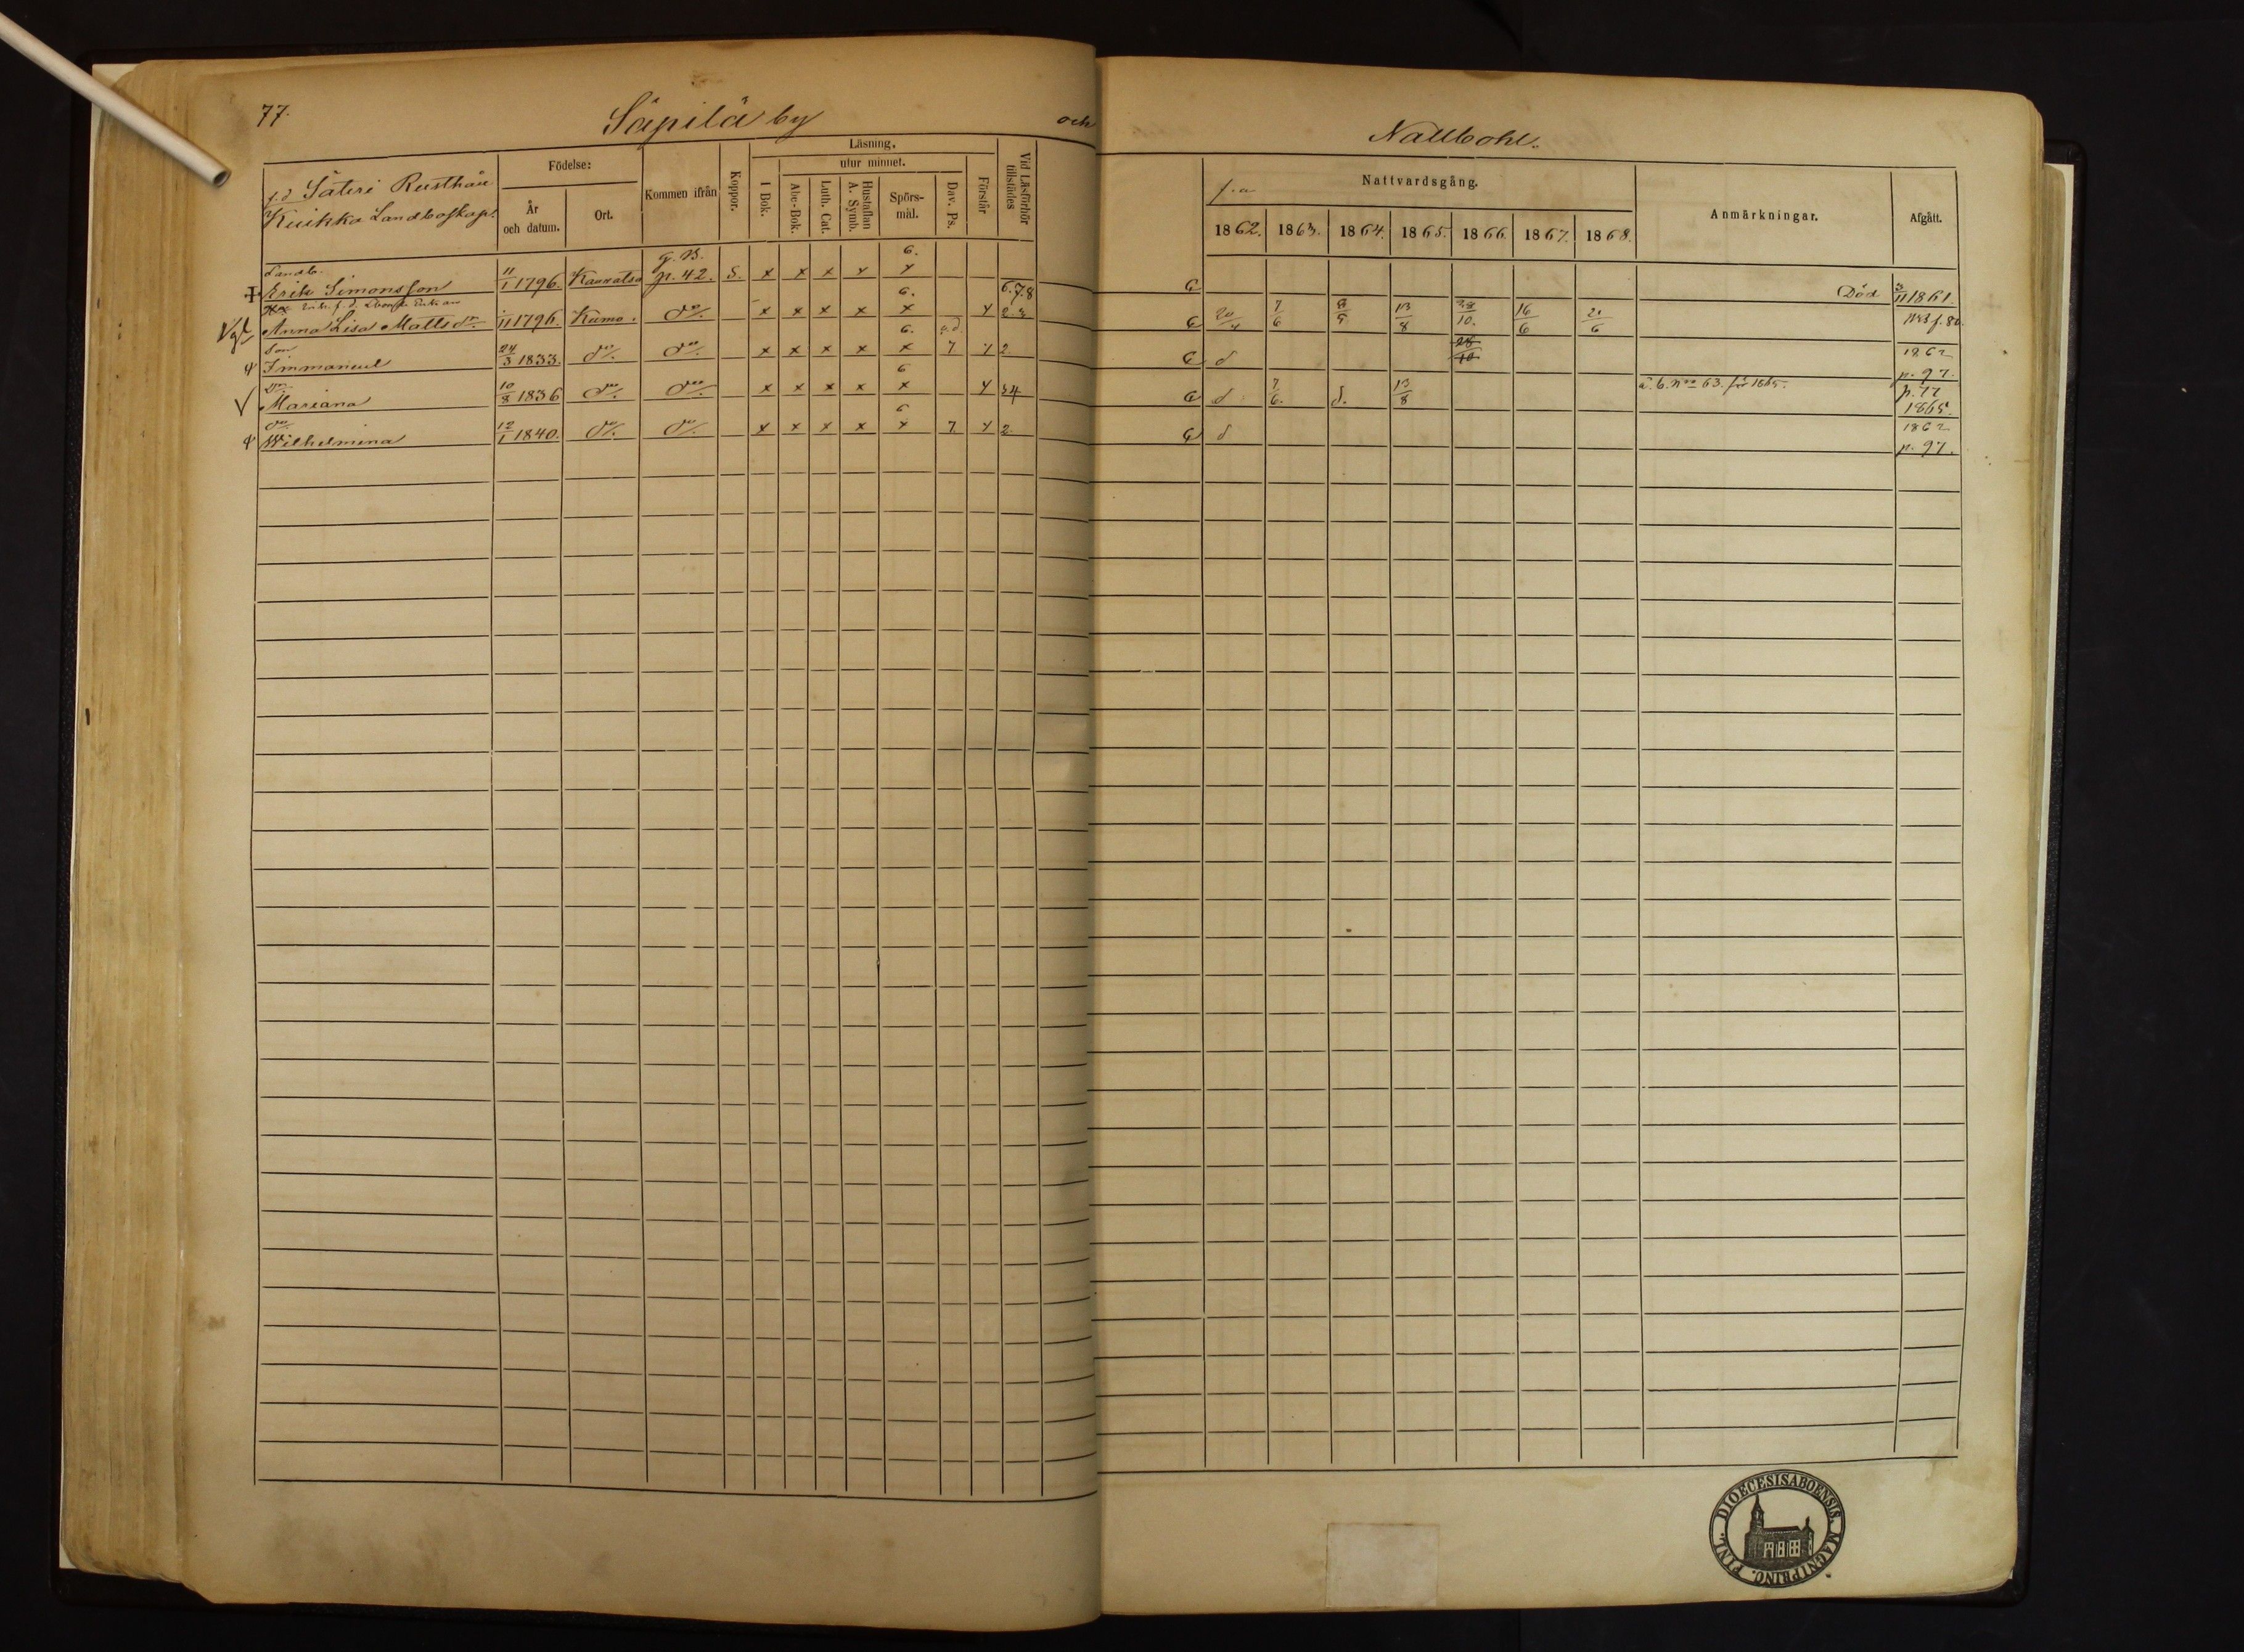 77.
Säpilä by
och
Nallbohl.
f.d Säteri Rusthåll
Kuikka Landboskap.
Födelse:
År och datum.
Ort.
Kommen ifrån
Koppor.
Läsning.
I Bok.
utur minnet.
Abc-Bok.
Luth. Cat.
Hustaflan A. Symb.
Spörs-mål.
Dav. Ps.
Förstår
Vid Läsförhör tillstädes
f. a
Nattvardsgång.
1862. 1863. 1864. 1865. 1866. 1867. 1868.
Anmärkningar.
Afgått.
Landb. g. B. 6.
Erik Simonsson 11/1 1796. Kauvatsa p. 42. S. x x x x x 6.7.8 G Död 3/11 1861.
6.
Anna Lisa Matts dr. 1/11 1796. Kumo. do/. x x x x x y 2.3 G 20/4 7/6 13/8 28/10. 16/6 21/6
Son 6. g.d.
Immanuel 24/3 1833. do/. do/. x x x x x 7 y 2 G d 28/10 1862 p. 97.
Dr. 6
Mariana 10/8 1836 do/. do/. x x x x x y 34 G d 7/6. d. 13/8 å. b. n:o 63. för 1865. p. 77 1865.
do. 6
Wilhelmina 12/1 1840. do/. do/. x x x x x 7. y 2 G d 1862 p. 97.
DIOECESIS ABOENSIS. MAGNI PRINC. FINL.